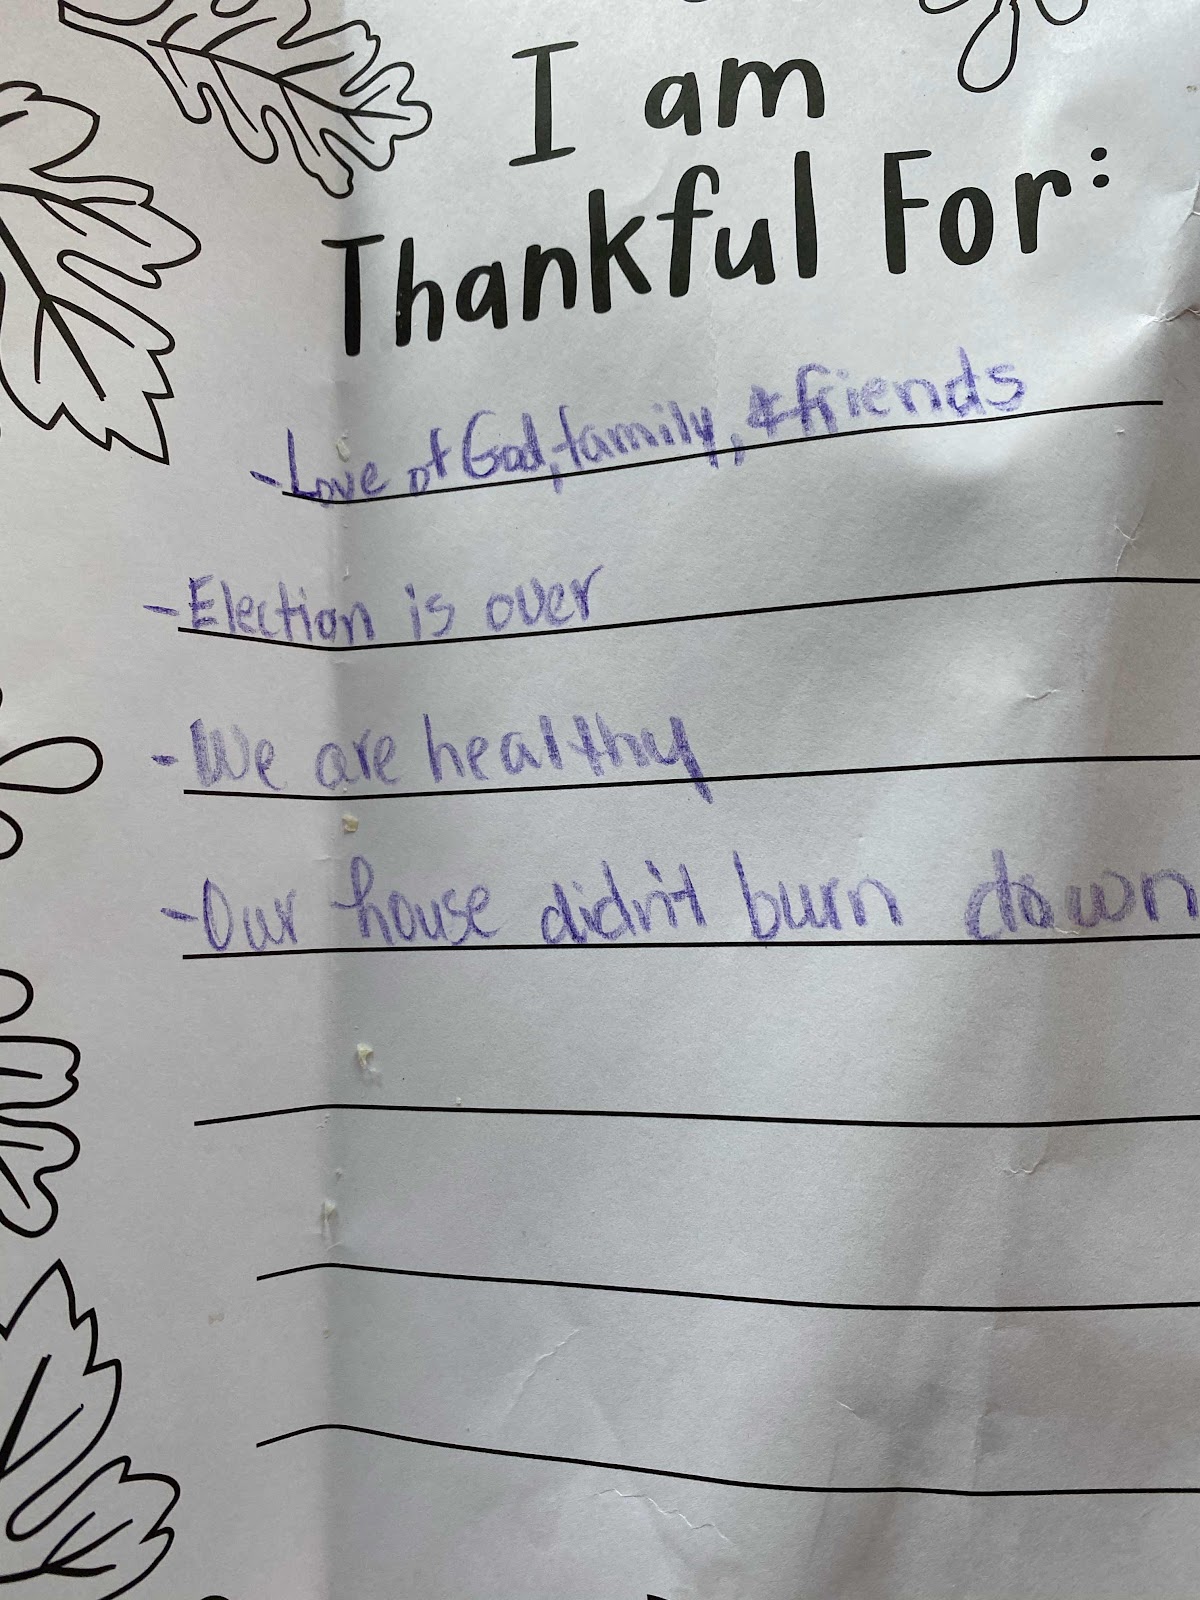 I am
Thankful For:
-Love of God, family, & friends
-Election is over
-We are healthy
-Our house didn't burn down